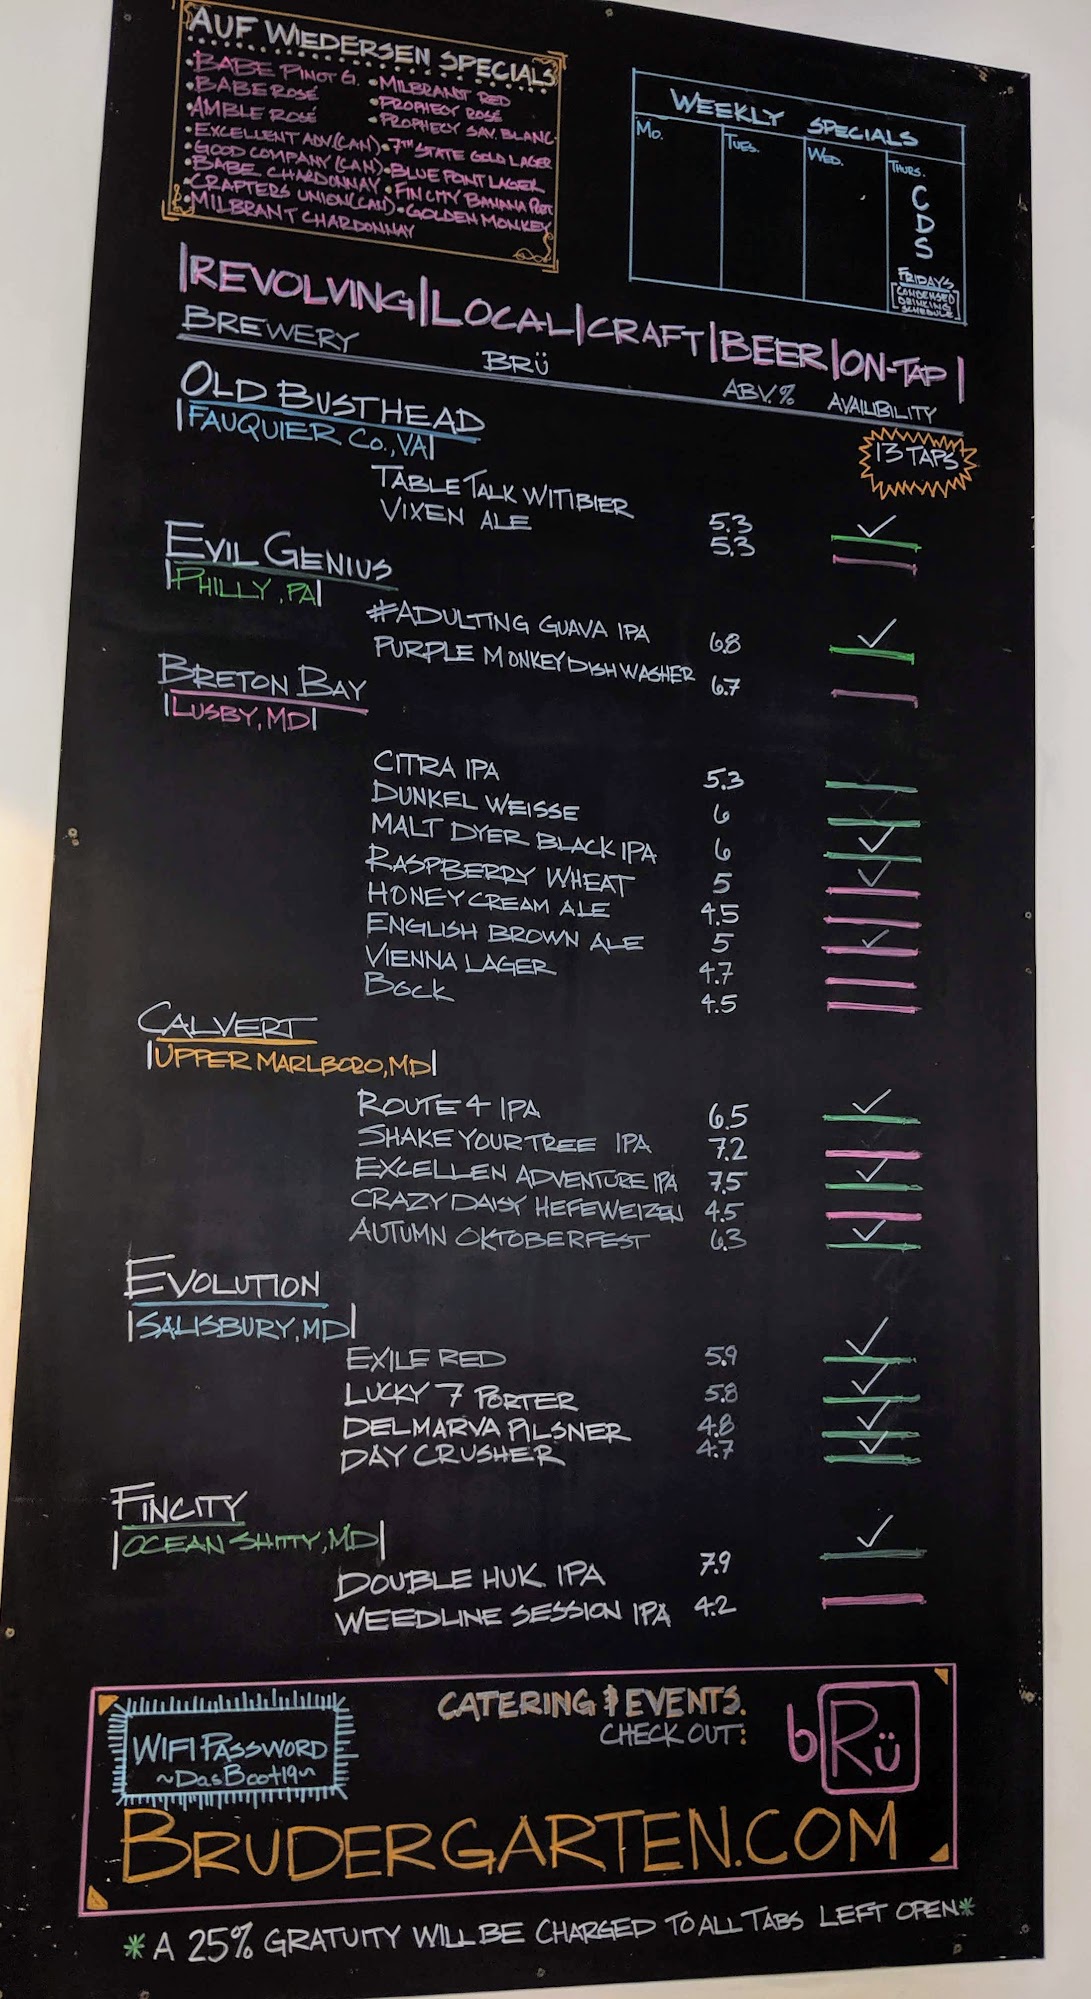 AUF WIEDERSEN SPECIALS
•BABE PINOT G. •MILBRANDT RED
•BABE ROSÉ •PROPHECY ROSÉ
•AMBLE ROSÉ •PROPHECY SAV. BLANC
•EXCELLENT ADV(CAN) •7TH STATE GOLD LAGER
•GOOD COMPANY (CAN) •BLUE POINT LAGER
•BABE CHARDONNAY •FIN CITY BANANA
•CRAFTERS UNION(CAN) •GOLDEN MONKEY
•MILBRANT CHARDONNAY
WEEKLY SPECIALS
MO. TUES. WED. THURS.
C
D
S
FRIDAYS
[CONDENSED
DRINKING
SCHEDULE]
|REVOLVING|LOCAL|CRAFT|BEER|ON-TAP|
BREWERY BRÜ ABV.% AVAILIBILITY
13 TAPS
OLD BUSTHEAD
|FAUQUIER CO.,VA|
TABLE TALK WITIBIER 5.3 ✓
VIXEN ALE 5.3
EVIL GENIUS
|PHILLY, PA|
#ADULTING GUAVA IPA 6.8 ✓
PURPLE MONKEY DISHWASHER 6.7
BRETON BAY
|LUSBY, MD|
CITRA IPA 5.3
DUNKEL WEISSE 6
MALT DYER BLACK IPA 6 ✓
RASPBERRY WHEAT 5 ✓
HONEY CREAM ALE 4.5
ENGLISH BROWN ALE 5 ✓
VIENNA LAGER 4.7
BOCK 4.5
CALVERT
|UPPER MARLBORO,MD|
ROUTE 4 IPA 6.5 ✓
SHAKE YOUR TREE IPA 7.2
EXCELLEN ADVENTURE IPA 7.5 ✓
CRAZY DAISY HEFEWEIZEN 4.5
AUTUMN OKTOBERFEST 6.3 ✓
EVOLUTION
|SALISBURY,MD|
EXILE RED 5.9 ✓
LUCKY 7 PORTER 5.8 ✓
DELMARVA PILSNER 4.8 ✓
DAY CRUSHER 4.7 ✓
FINCITY
|OCEAN SHITTY, MD|
DOUBLE HUK IPA 7.9 ✓
WEEDLINE SESSION IPA 4.2
WIFI PASSWORD
~DasBoot19~
CATERING & EVENTS.
CHECK OUT:
bRü
BRUDERGARTEN.COM
*A 25% GRATUITY WILL BE CHARGED TO ALL TABS LEFT OPEN*